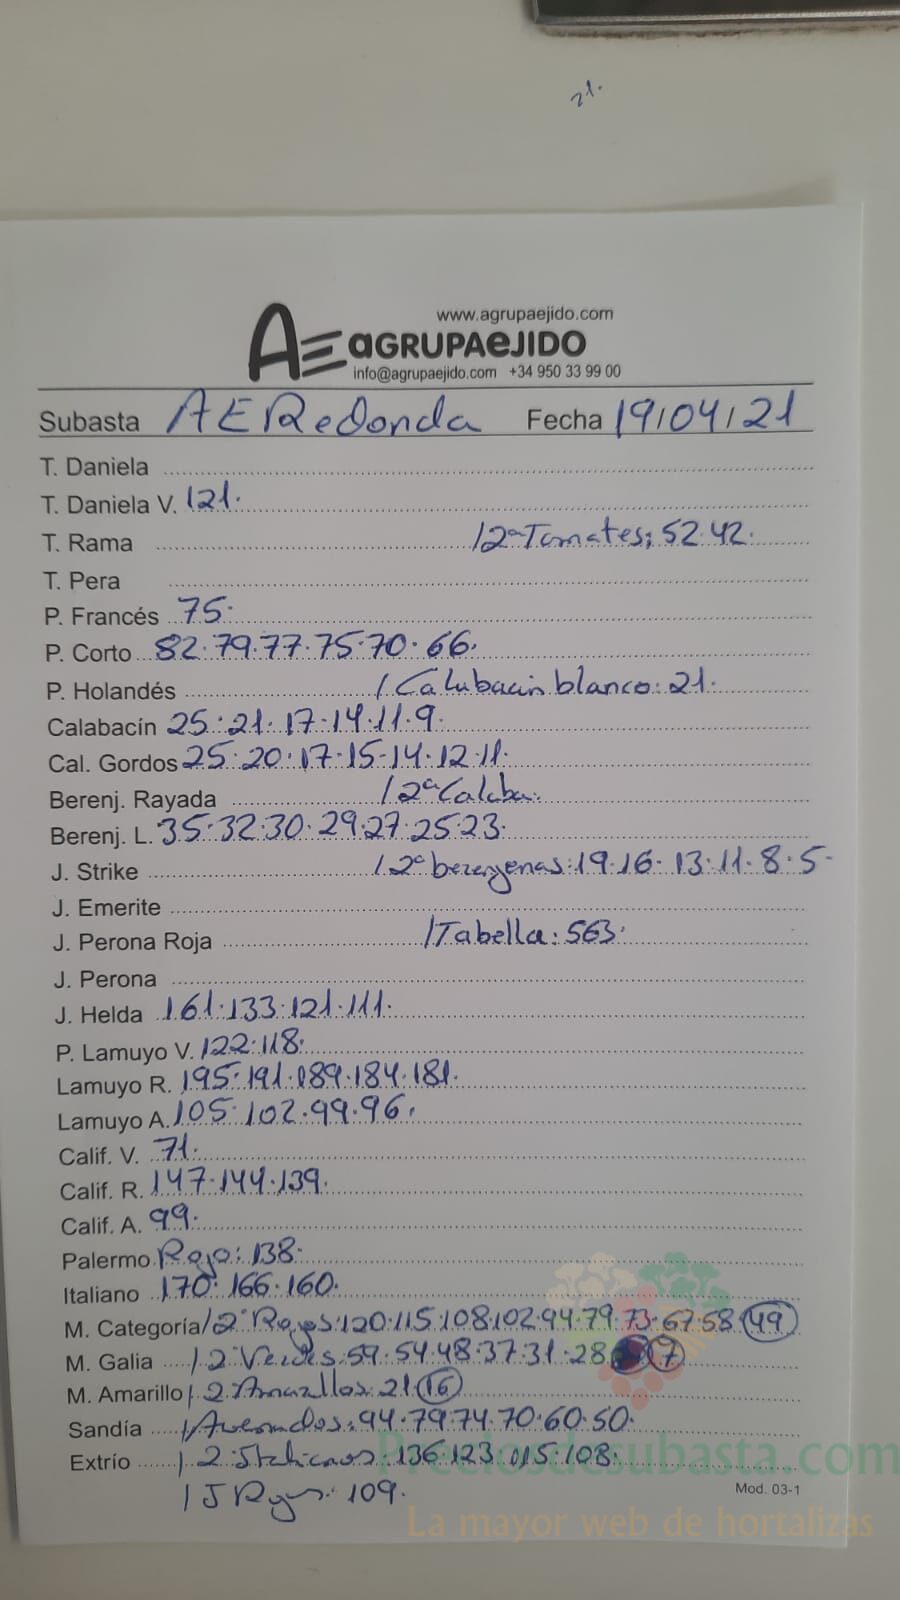 21.
www.agrupaejido.com
AE aGRUPAeJIDO
info@agrupaejido.com +34 950 33 99 00
Subasta AERedonda Fecha 19/04/21
T. Daniela
T. Daniela V. 121.
T. Rama /2ª Tomates; 52.42.
T. Pera
P. Francés 75.
P. Corto 82.79.77.75.70.66.
P. Holandés / Calabacin blanco: 21.
Calabacín 25.21.17.14.11.9.
Cal. Gordos 25.20.17.15-14.12.11.
Berenj. Rayada /2ª Calaba.
Berenj. L. 35.32.30.29.27.25.23.
J. Strike /2ª berengenas: 19.16.13.11.8.5-
J. Emerite
J. Perona Roja /Tabella: 563.
J. Perona
J. Helda 161.133.121.111.
P. Lamuyo V. 122.118.
Lamuyo R. 195.191.189.184.181.
Lamuyo A. 105.102.99.96.
Calif. V. 71.
Calif. R. 147.144.139.
Calif. A. 99.
Palermo Rojo: 138.
Italiano 170.166.160.
M. Categoría /2ª Rojos: 120.115.108.102.94.79.73.67.58 49
M. Galia /2 Verdes: 59.54.48.37.31.28 7
M. Amarillo /2 Amarillos: 21 16
Sandía /Asurcados: 94.79.74.70.60.50.
Extrío /2 Italianos: 136.123.115.108.
/J Rojos: 109.
Mod. 03-1
Preciosdesubasta.com
La mayor web de hortalizas